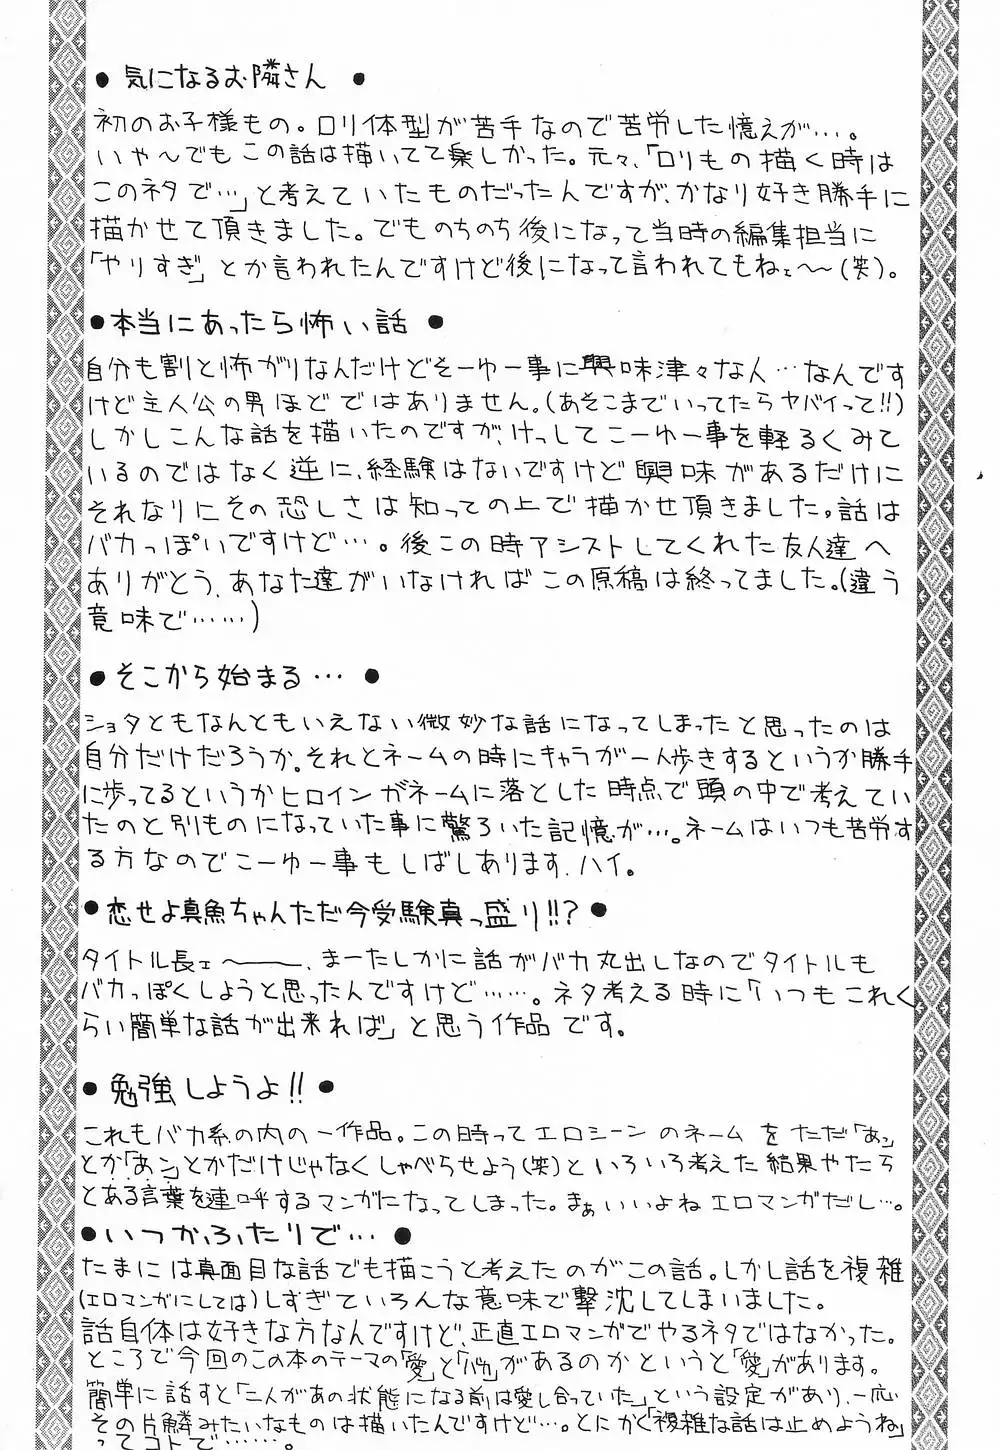 ● 気になるお隣さん ●
初のお子様もの。ロリ体型が苦手なので苦労した憶えが…。
いや〜でもこの話は描いてて楽しかった。元々、「ロリもの描く時は
このネタで…」と考えていたものだったんですが、かなり好き勝手に
描かせて頂きました。でものちのち後になって当時の編集担当に
「やりすぎ」とか言われたんですけど後になって言われてもねェ〜〜(笑)。
● 本当にあったら怖い話 ●
自分も割と怖がりなんだけどそーゆー事に興味津々な人…なんです
けど主人公の男ほどではありません。(あそこまでいってたらヤバイって!!)
しかしこんな話を描いたのですが、けっしてこーゆー事を軽るくみて
いるのではなく逆に、経験はないですけど興味があるだけに
それなりにその恐しさは知っての上で描かせ頂きました。話は
バカっぽいですけど…。後この時アシストしてくれた友人達へ
ありがとう、あなた達がいなければこの原稿は終ってました。(違う
意味で……)
● そこから始まる… ●
ショタともなんともいえない微妙な話になってしまったと思ったのは
自分だけだろうか。それとネームの時にキャラが一人歩きするというか勝手
に歩ってるというかヒロインがネームに落とした時点で頭の中で考えてい
たのと別ものになっていた事に驚ろいた記憶が…。ネームはいつも苦労す
る方なのでこーゆー事もしばしあります、ハイ。
● 恋せよ真魚ちゃんただ今受験真っ盛り!!? ●
タイトル長ェ〜――、まーたしかに話がバカ丸出しなのでタイトルも
バカっぽくしようと思ったんですけど……。ネタ考える時に「いつもこれく
らい簡単な話が出来れば」と思う作品です。
● 勉強しようよ!! ●
これもバカ系の内の一作品。この時ってエロシーンのネームをただ「あッ」
とか「あン」とかだけじゃなくしゃべらせよう(笑)といろいろ考えた結果やたら
とある言葉を連呼するマンガになってしまった。まぁいいよねエロマンガだし…。
● いつかふたりで… ●
たまには真面目な話でも描こうと考えたのがこの話。しかし話を複雑
(エロマンガにしては)しすぎていろんな意味で撃沈してしまいました。
話自体は好きな方なんですけど、正直エロマンガでやるネタではなかった。
ところで今回のこの本のテーマの「愛」と「バカ」があるのかというと「愛」があります。
簡単に話すと「二人があの状態になる前は愛し合っていた」という設定があり、一応
その片鱗みたいなものは描いたんですけど…。とにかく「複雑な話は止めようね」
ってコトで……。